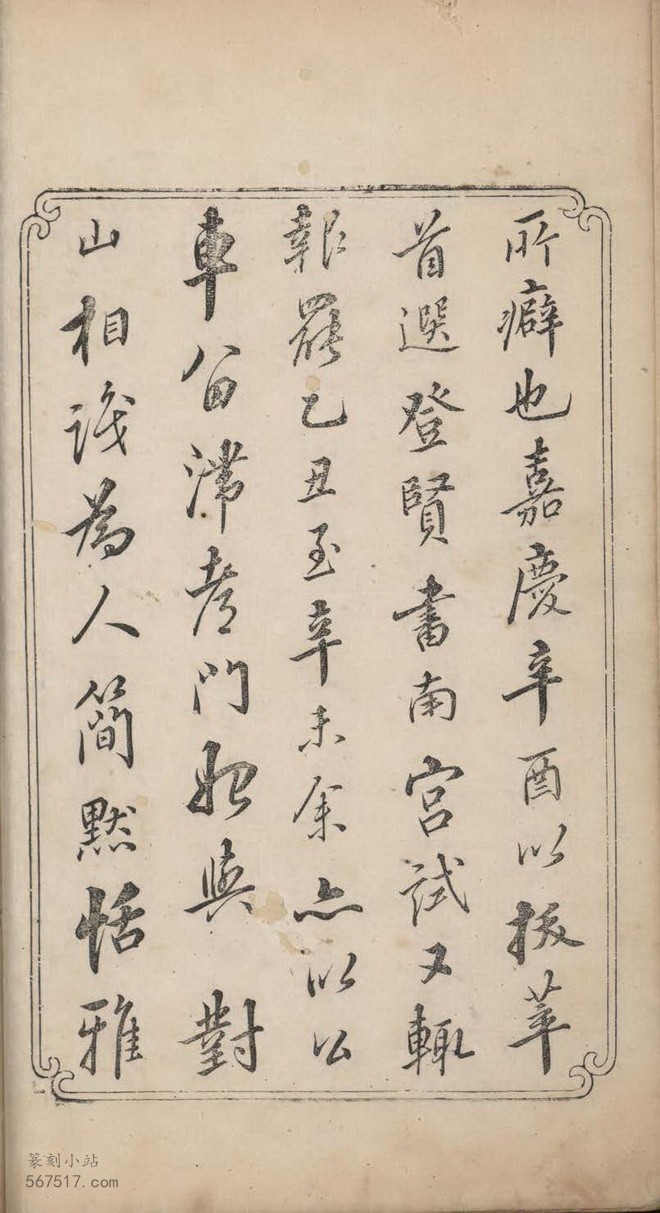 所癖也嘉慶辛酉以拔萃
首選登賢書南宮試又輒
報罷乙丑至辛未余亦以公
車留滯都門始與 對
山相識為人簡默恬雅
篆刻小站
567517.com